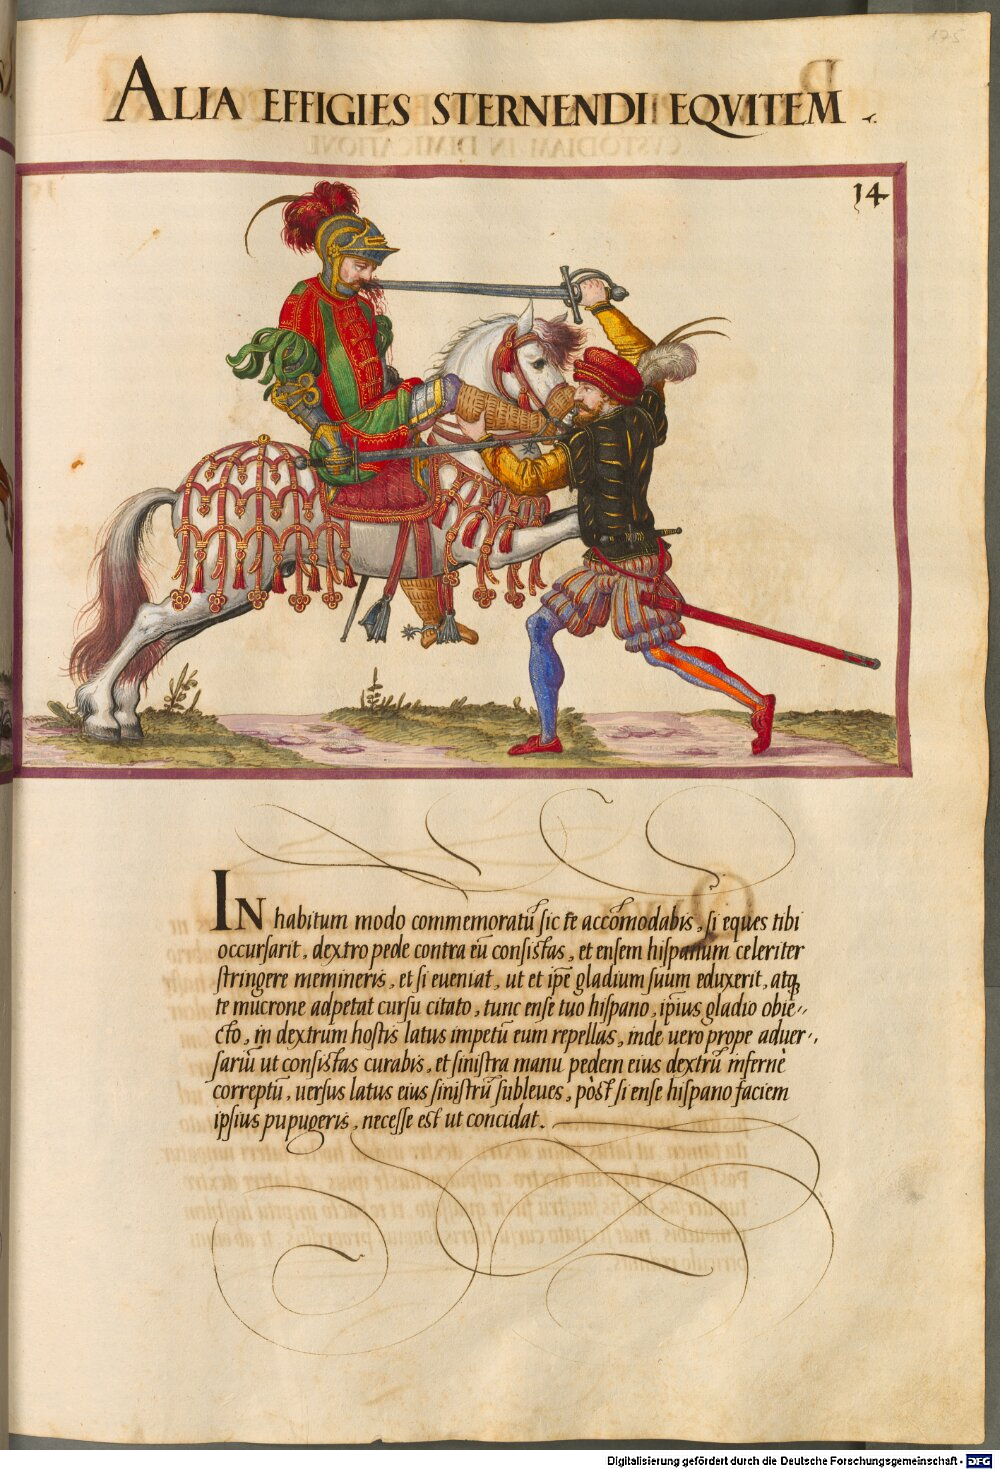 175
ALIA EFFIGIES STERNENDI EQVITEM .
14
IN habitum modo commemoratũ sic te accõmodabis, si eques tibi
occursarit, dextro pede contra eũ consistas, et ensem hispanum celeriter
stringere memineris, et si eueniat, ut et ipẽ gladium suum eduxerit, atqꝫ
te mucrone adpetat cursu citato, tunc ense tuo hispano, ipius gladio obiẽ//
cto, in dextrum hostis latus impetũ eum repellas, inde uero prope aduer//
sariũ ut consistas curabis, et sinistra manu pedem eius dextrũ infernè
correptũ, uersus latus eius sinistrũ subleues, pòst si ense hispano faciem
ipsius pupugeris, necesse est ut concidat.
Digitalisierung gefördert durch die Deutsche Forschungsgemeinschaft - DFG